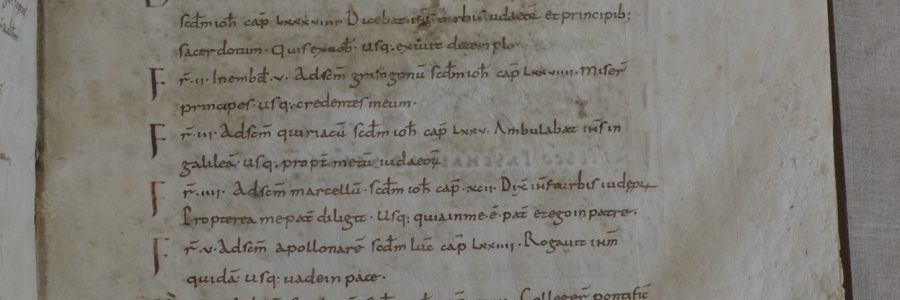 scdm ioh cap̄ Lxxxviiii. Dicebat ih̄s turbis iudaeor̄ et principib;
sacerdotum. Quis ex uob̄. usq; exiuit de templo.
F r̄. ii. In ebd̄. v. Ad sc̄m grisogonū scdm ioh̄ cap̄ Lxxviiii. Miser̄
principes. usq; credentes in eum.
F r̄. iii. Ad sc̄m quiriacū scdm ioh̄ cap̄ Lxxv. Ambulabat ih̄s in
galileā usq; propt̄ metū iudaeor̄
F r̄. iiii. Ad sc̄m marcellū. scdm ioh̄ cap̄. xcii. Dix̄ ih̄s turbis iudeor̄
Propterea me pat̄ diligit. Usq; quia in me ē pat̄ et ego in patre.
F r̄. v. Ad sc̄m apollonarē scdm luc̄ cap̄ Lxxiiii. Rogauit ih̄m
quidā usq; uade in pace.